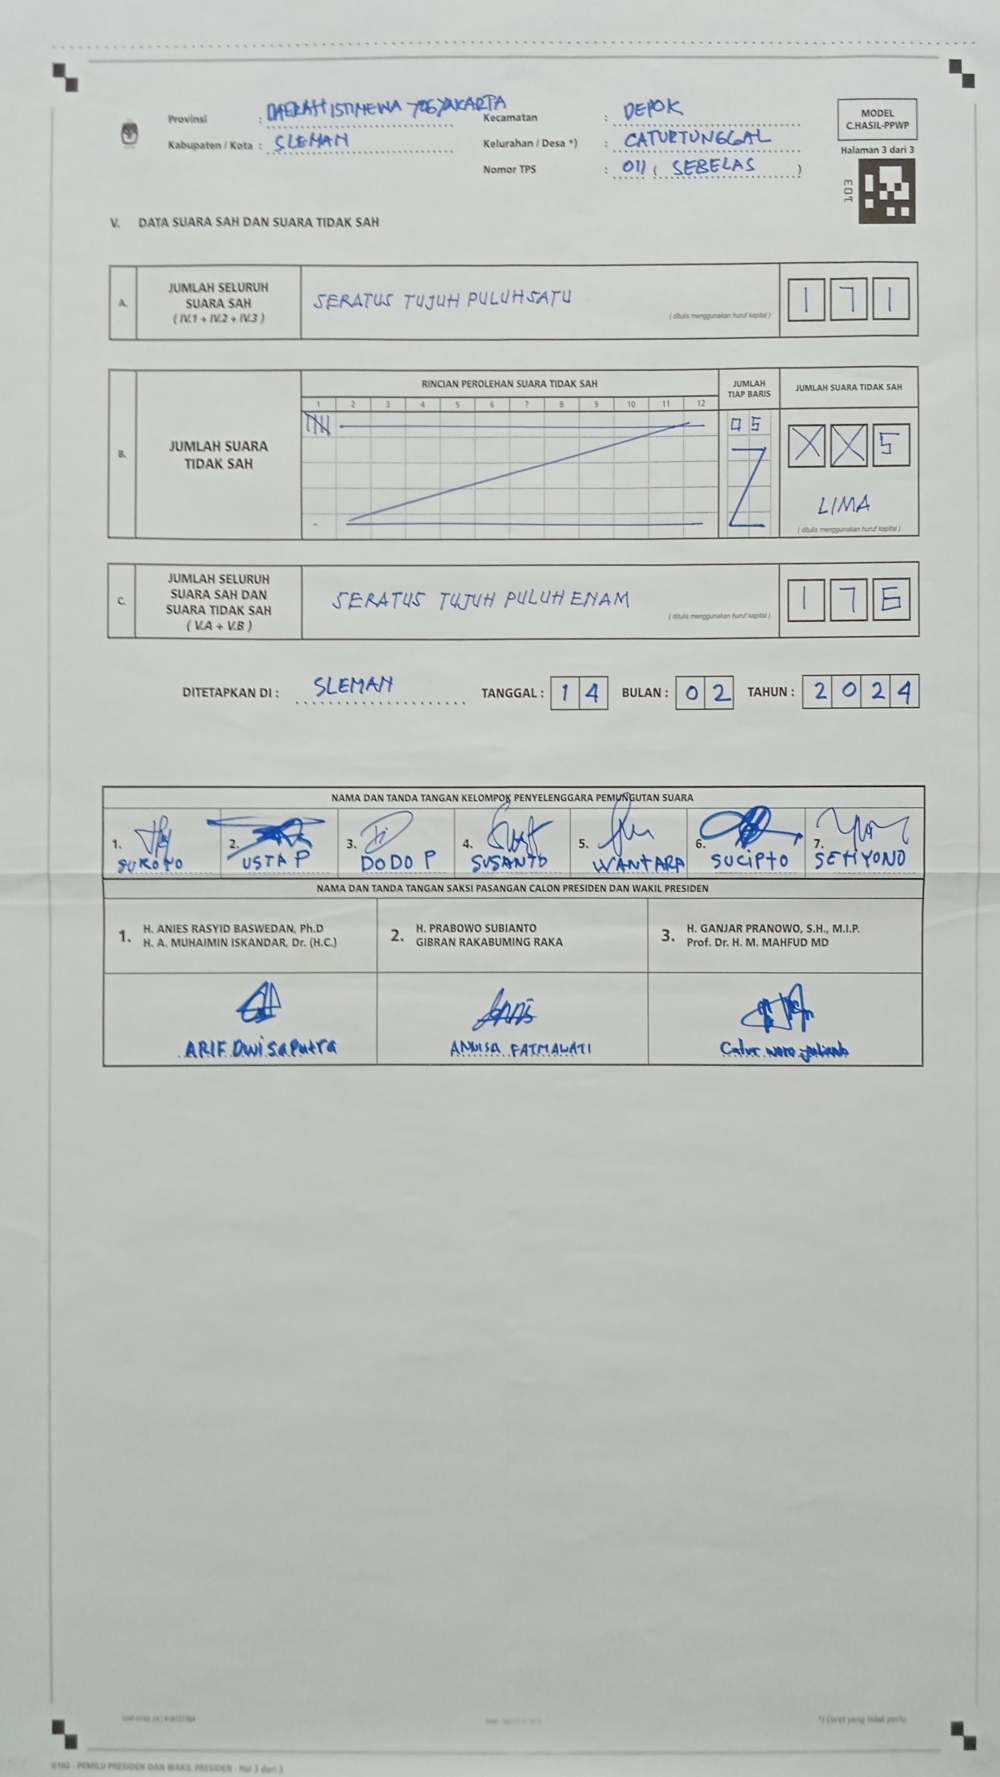 Provinsi : DAERAH ISTIMEWA YOGYAKARTA
Kabupaten / Kota : SLEMAN
Kecamatan : DEPOK
Kelurahan / Desa *) : CATURTUNGGAL
Nomor TPS : 011 ( SEBELAS )
MODEL
C.HASIL-PPWP
Halaman 3 dari 3
V. DATA SUARA SAH DAN SUARA TIDAK SAH
A.
JUMLAH SELURUH
SUARA SAH
( IV.1 + IV.2 + IV.3 )
SERATUS TUJUH PULUH SATU
( ditulis menggunakan huruf kapital )
1 7 1
B.
JUMLAH SUARA
TIDAK SAH
RINCIAN PEROLEHAN SUARA TIDAK SAH
1 2 3 4 5 6 7 8 9 10 11 12
JUMLAH
TIAP BARIS
05
JUMLAH SUARA TIDAK SAH
X X 5
LIMA
( ditulis menggunakan huruf kapital )
C.
JUMLAH SELURUH
SUARA SAH DAN
SUARA TIDAK SAH
( V.A + V.B )
SERATUS TUJUH PULUH ENAM
( ditulis menggunakan huruf kapital )
1 7 6
DITETAPKAN DI : SLEMAN TANGGAL : 14 BULAN : 02 TAHUN : 2024
NAMA DAN TANDA TANGAN KELOMPOK PENYELENGGARA PEMUNGUTAN SUARA
1. 2. 3. 4. 5. 6. 7.
SUKOYO USTA P DODO P SUSANTO WANTARA SUCIPTO SETIYONO
NAMA DAN TANDA TANGAN SAKSI PASANGAN CALON PRESIDEN DAN WAKIL PRESIDEN
1. H. ANIES RASYID BASWEDAN, Ph.D
H. A. MUHAIMIN ISKANDAR, Dr. (H.C.)
2. H. PRABOWO SUBIANTO
GIBRAN RAKABUMING RAKA
3. H. GANJAR PRANOWO, S.H., M.I.P.
Prof. Dr. H. M. MAHFUD MD
ARIF Dwi Saputra
ANNISA FATMAWATI
Catur
*) Coret yang tidak perlu
0102 - PEMILU PRESIDEN DAN WAKIL PRESIDEN - Hal 3 dari 3